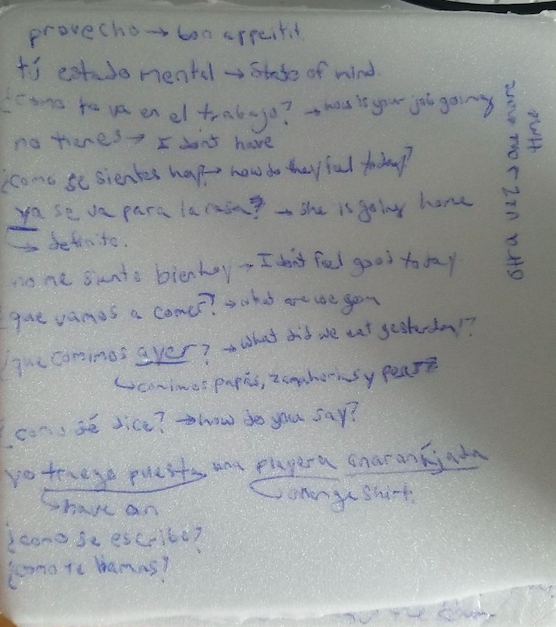 provecho → bon appeitit.
tú estado mental → State of mind.
¿Como te va en el trabajo? → how is your job going
no tienes → I don't have
¿como se sientes hoy? → how do they feel today?
ya se va para la casa? → she is going home
→ definite.
no me siento bien hoy → I don't feel good today
¿que vamos a comer? → what are we gon
¿que comimos ayer? → what did we eat yesterday?
comimos papás, zanahorias y
¿como sé dice? → how do you say?
yo traego puesta una playera anaranjada
have on orange shirt.
¿como se escribe?
¿como te llamas?